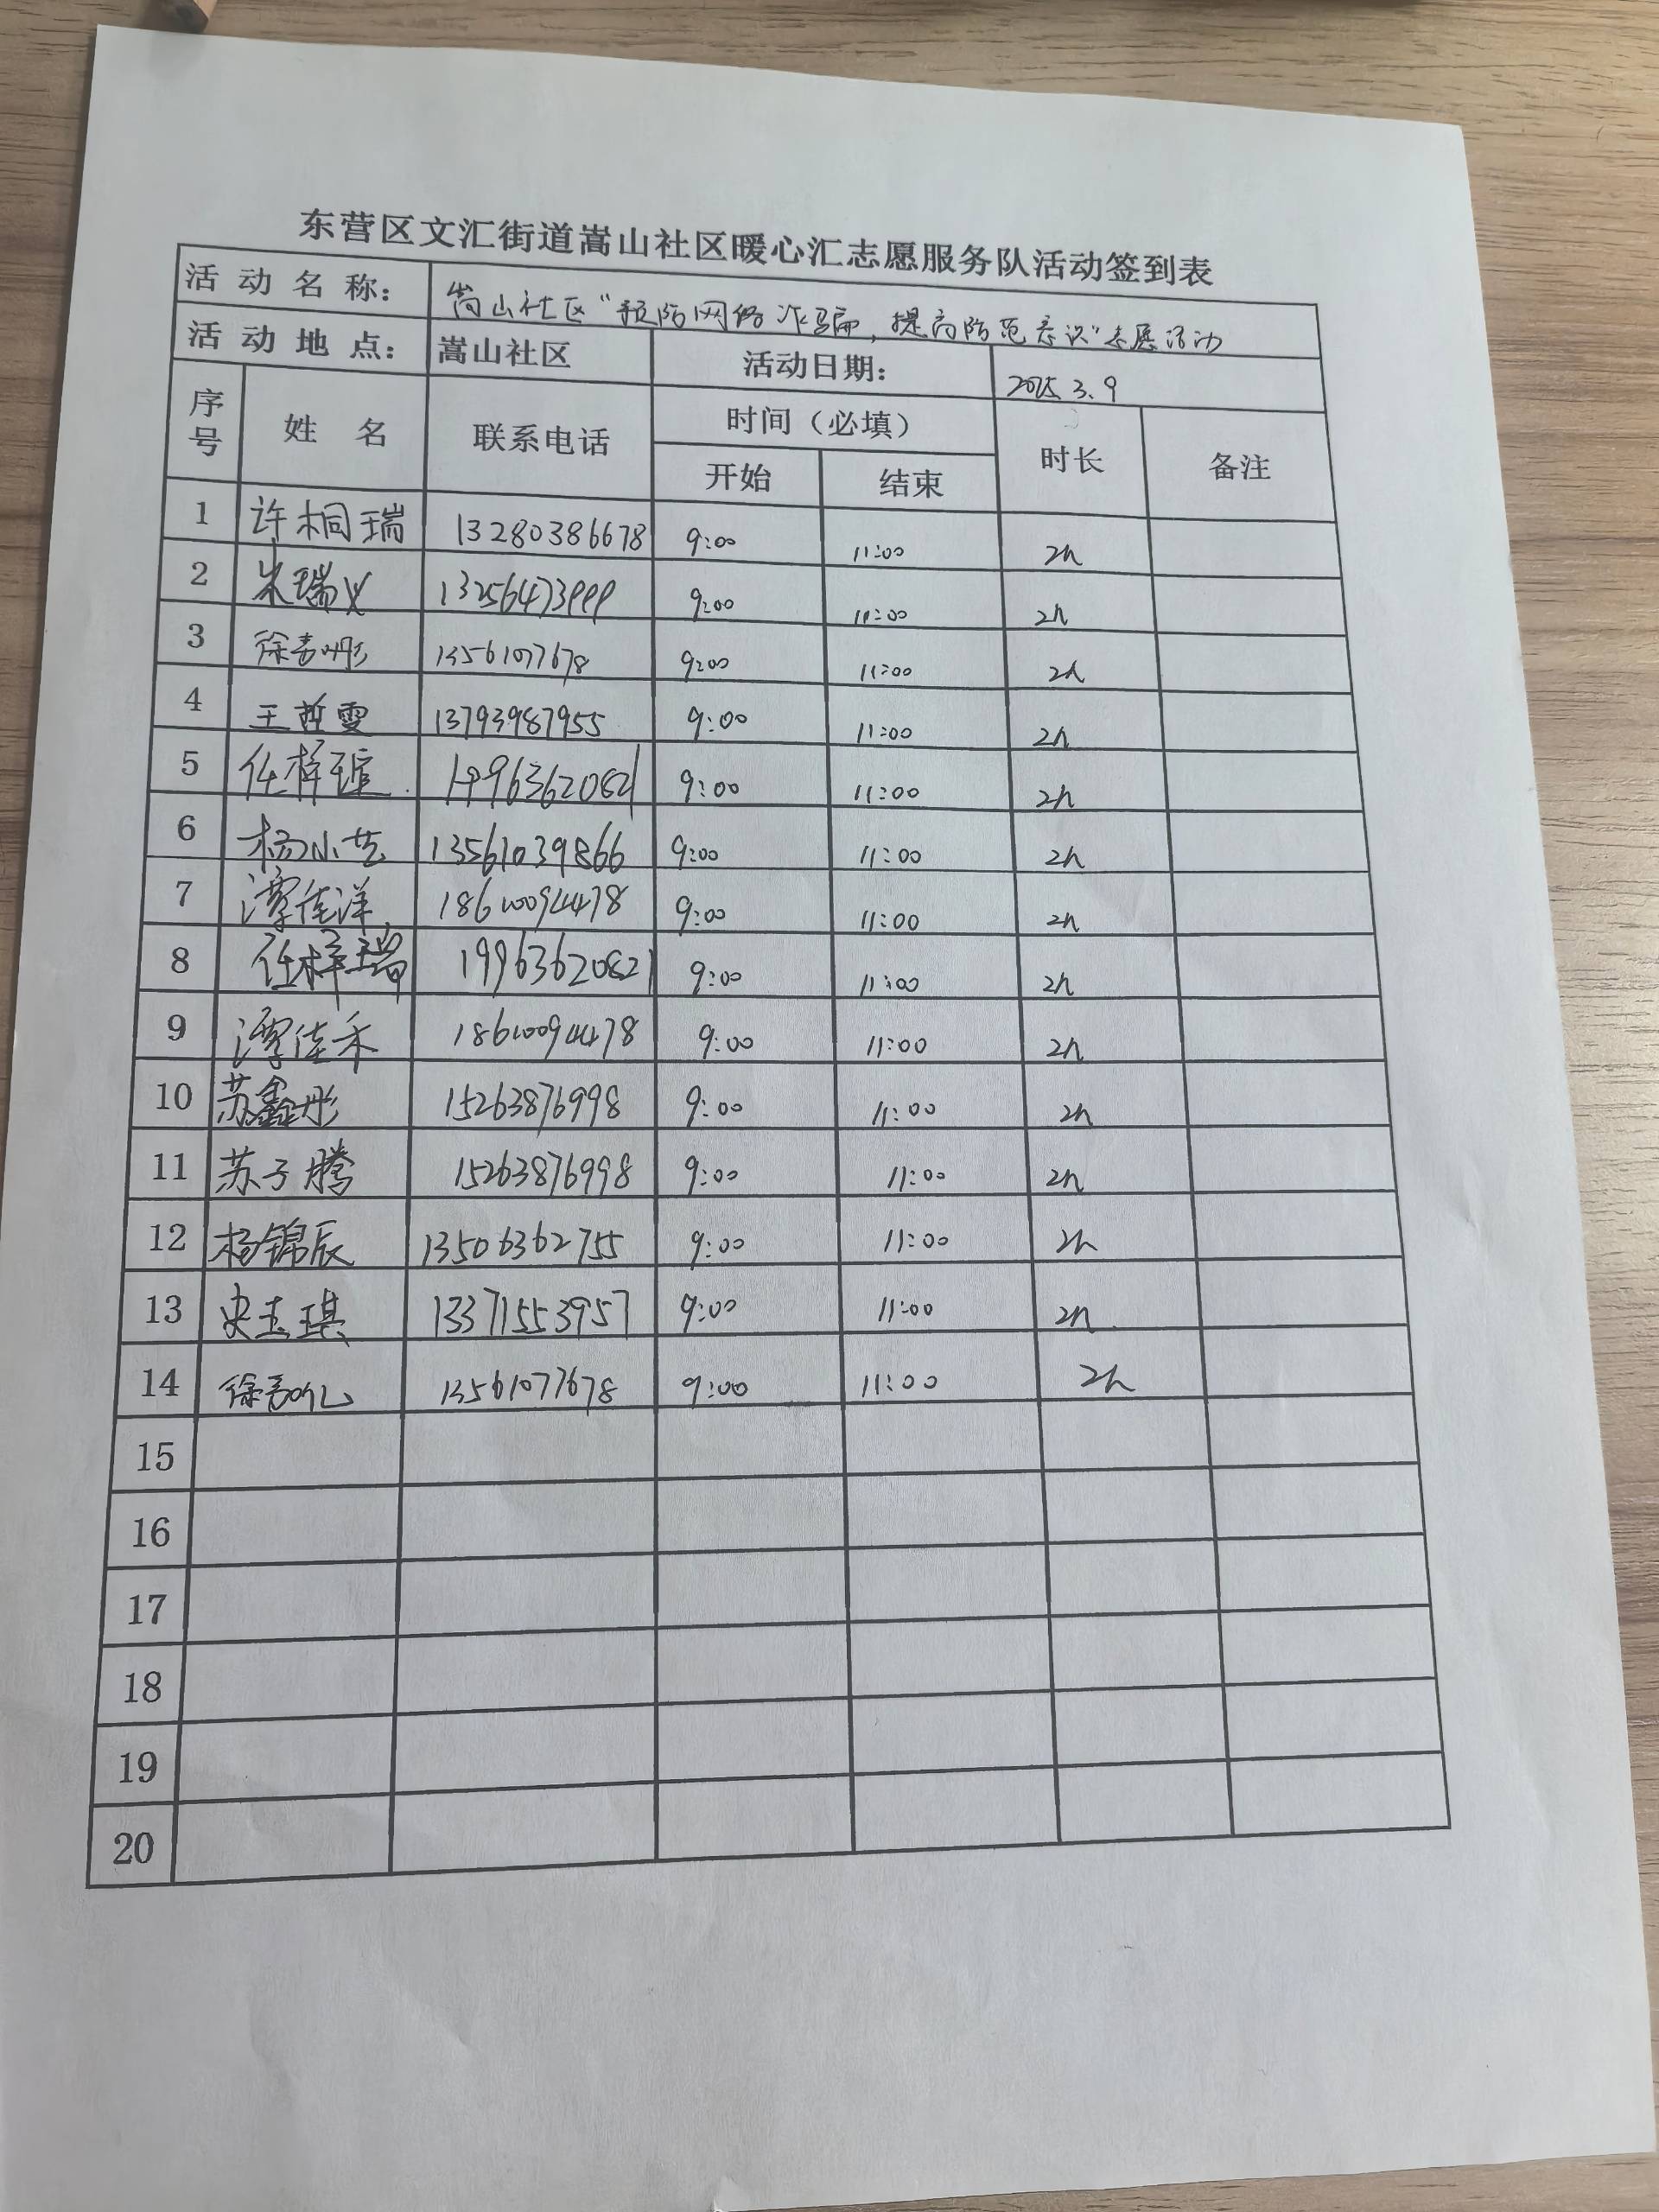 东营区文汇街道嵩山社区暖心汇志愿服务队活动签到表
活动名称： 嵩山社区“预防网络诈骗，提高防范意识”志愿活动
活动地点： 嵩山社区 活动日期： 2025.3.9
序号 姓名 联系电话 时间（必填） 时长 备注
开始 结束
1 许桐瑞 13280386678 9:00 11:00 2h
2 朱瑞义 13256473999 9:00 11:00 2h
3 徐嘉彤 13561077678 9:00 11:00 2h
4 王哲雯 13793987955 9:00 11:00 2h
5 任梓瑄 19963620821 9:00 11:00 2h
6 杨小艺 13561039866 9:00 11:00 2h
7 潭佳洋 18610094478 9:00 11:00 2h
8 任梓瑞 19963620821 9:00 11:00 2h
9 潭佳禾 18610094478 9:00 11:00 2h
10 苏鑫彤 15263876998 9:00 11:00 2h
11 苏子腾 15263876998 9:00 11:00 2h
12 杨锦辰 13506362755 9:00 11:00 2h
13 史玉琪 13371553957 9:00 11:00 2h
14 徐嘉忆 13561077678 9:00 11:00 2h
15
16
17
18
19
20